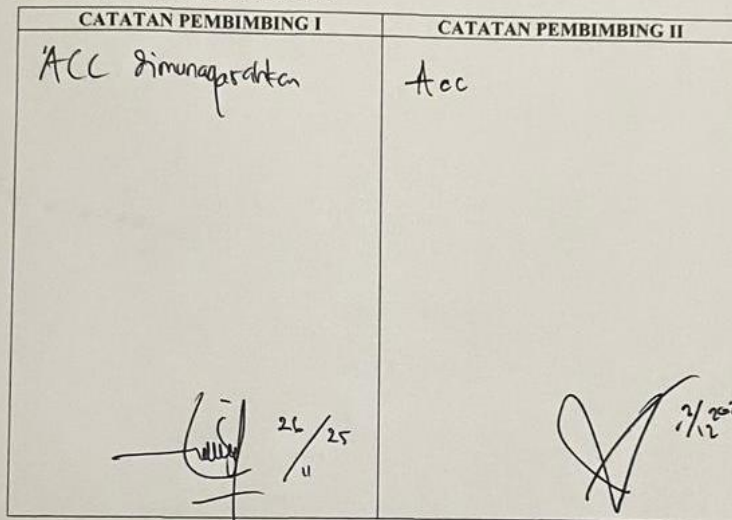 CATATAN PEMBIMBING I
CATATAN PEMBIMBING II
ACC dimunaqasahkan
Acc
26/11/25